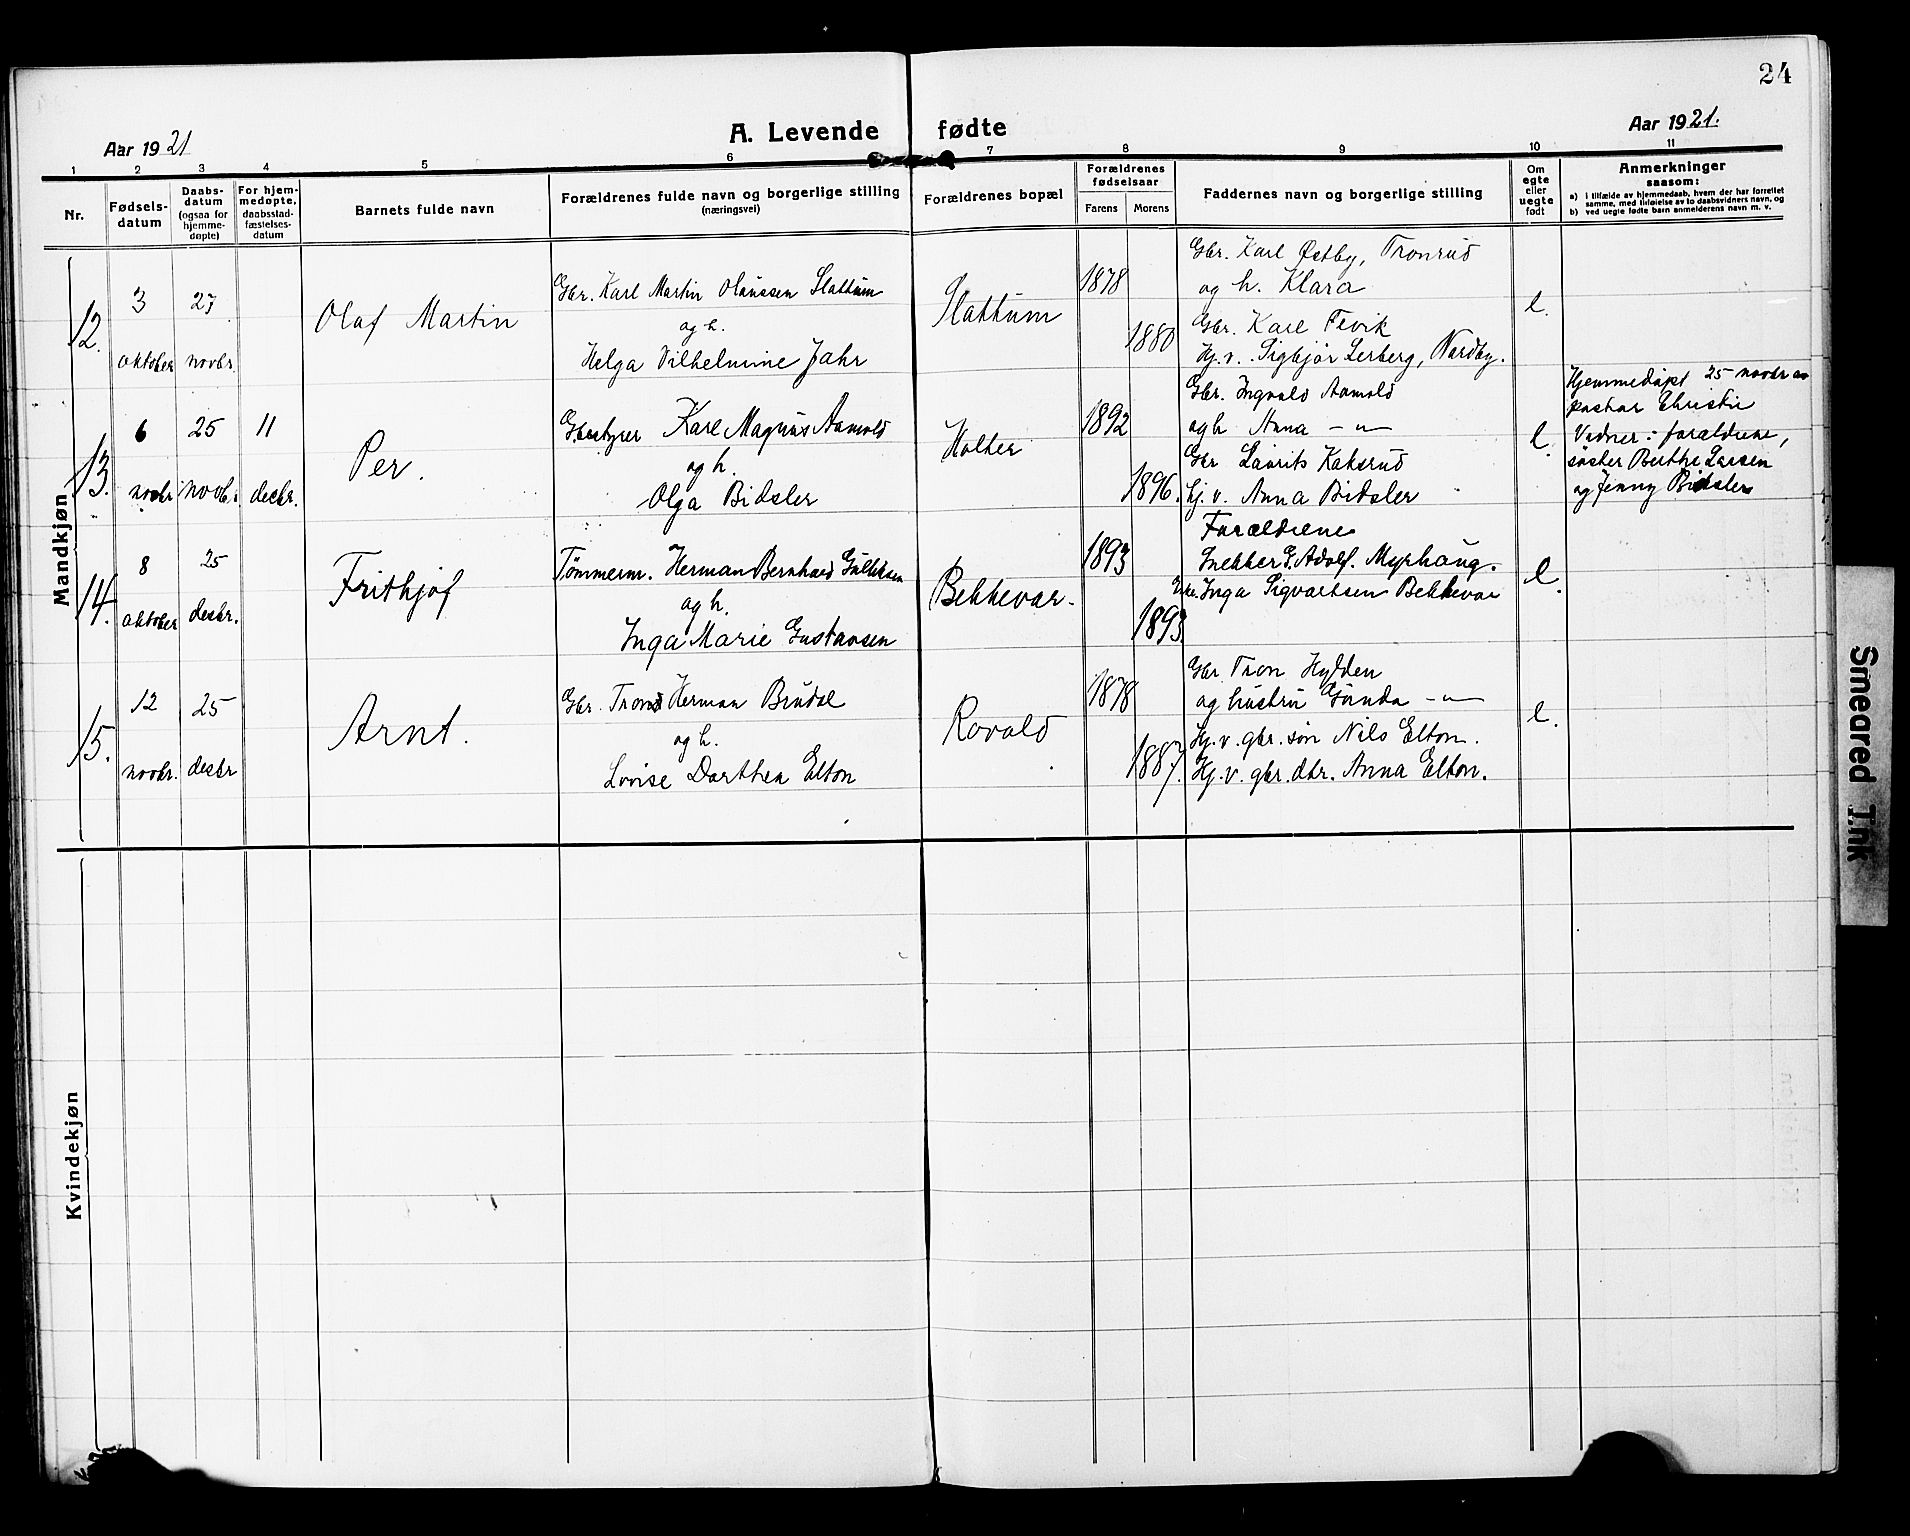 24
Aar 1921
A. Levende fødte
Aar 1921.
1 2 3 4 5 6 7 8 9 10 11
Nr.
Fødsels-
datum
Daabs-
datum
(ogsaa for
hjemme-
døpte)
For hjem-
medøpte,
daabsstad-
fæstelses-
datum
Barnets fulde navn
Forældrenes fulde navn og borgerlige stilling
(næringsvei)
Forældrenes bopæl
Forældrenes
fødselsaar
Farens Morens
Faddernes navn og borgerlige stilling
Om
egte
eller
uegte
født
Anmerkninger
saasom:
a) i tilfælde av hjemmedaab, hvem der har forrettet
samme, med tilføielse av to daabsvidners navn, og
b) ved uegte fødte barn anmelderens navn m. v.
Mandkjøn
12.
3
oktober
27
novbr.
Olaf Martin
Gbr. Karl Martin Olaussen Slattum
og h.
Helga Vilhelmine Jahr
Slattum
1878
1880
Gbr. Karl Østby, Tronrud
og h. Klara
Gbr. Karl Tevik
Hj. v. Sigbjør Lerberg, Nordby.
e.
13.
6
novbr
25
novbr.
11
desbr.
Per.
Karl Magnus Aamold
og h.
Olga Bidsler
Holter
1892
1896.
Gbr. Ingvald Aamold
og h. Anna — " —
Gbr Laurits Kaksrud
hj. v. Anna Bidsler
e.
Hjemmedøpt 25 novbr av
pastor Christie
Vidner: forældrene,
søster Berthe Larsen
og Jenny Bidsler
14.
8
oktober
25
desbr.
Frithjof
Tømmerm. Herman Bernhard Gulliksen
og h.
Inga Marie Gustavsen
Bekkevar.
1893
1893
Forældrene
Snekker G. Adolf. Myrhaug.
Enke. Inga Sigvartsen Bekkevar
e.
15.
12
novbr.
25
desbr
Arnt.
Gbr. Trond Herman Brudal
og h.
Lovise Dorthea Elton
Rovold
1878
1887.
Gbr. Tron Hylden
og hustru Gunda — " —
Hj. v. gbr. søn Nils Elton.
Hj. v. gbr. dtr. Anna Elton.
e.
Kvindekjøn
Smeared Ink